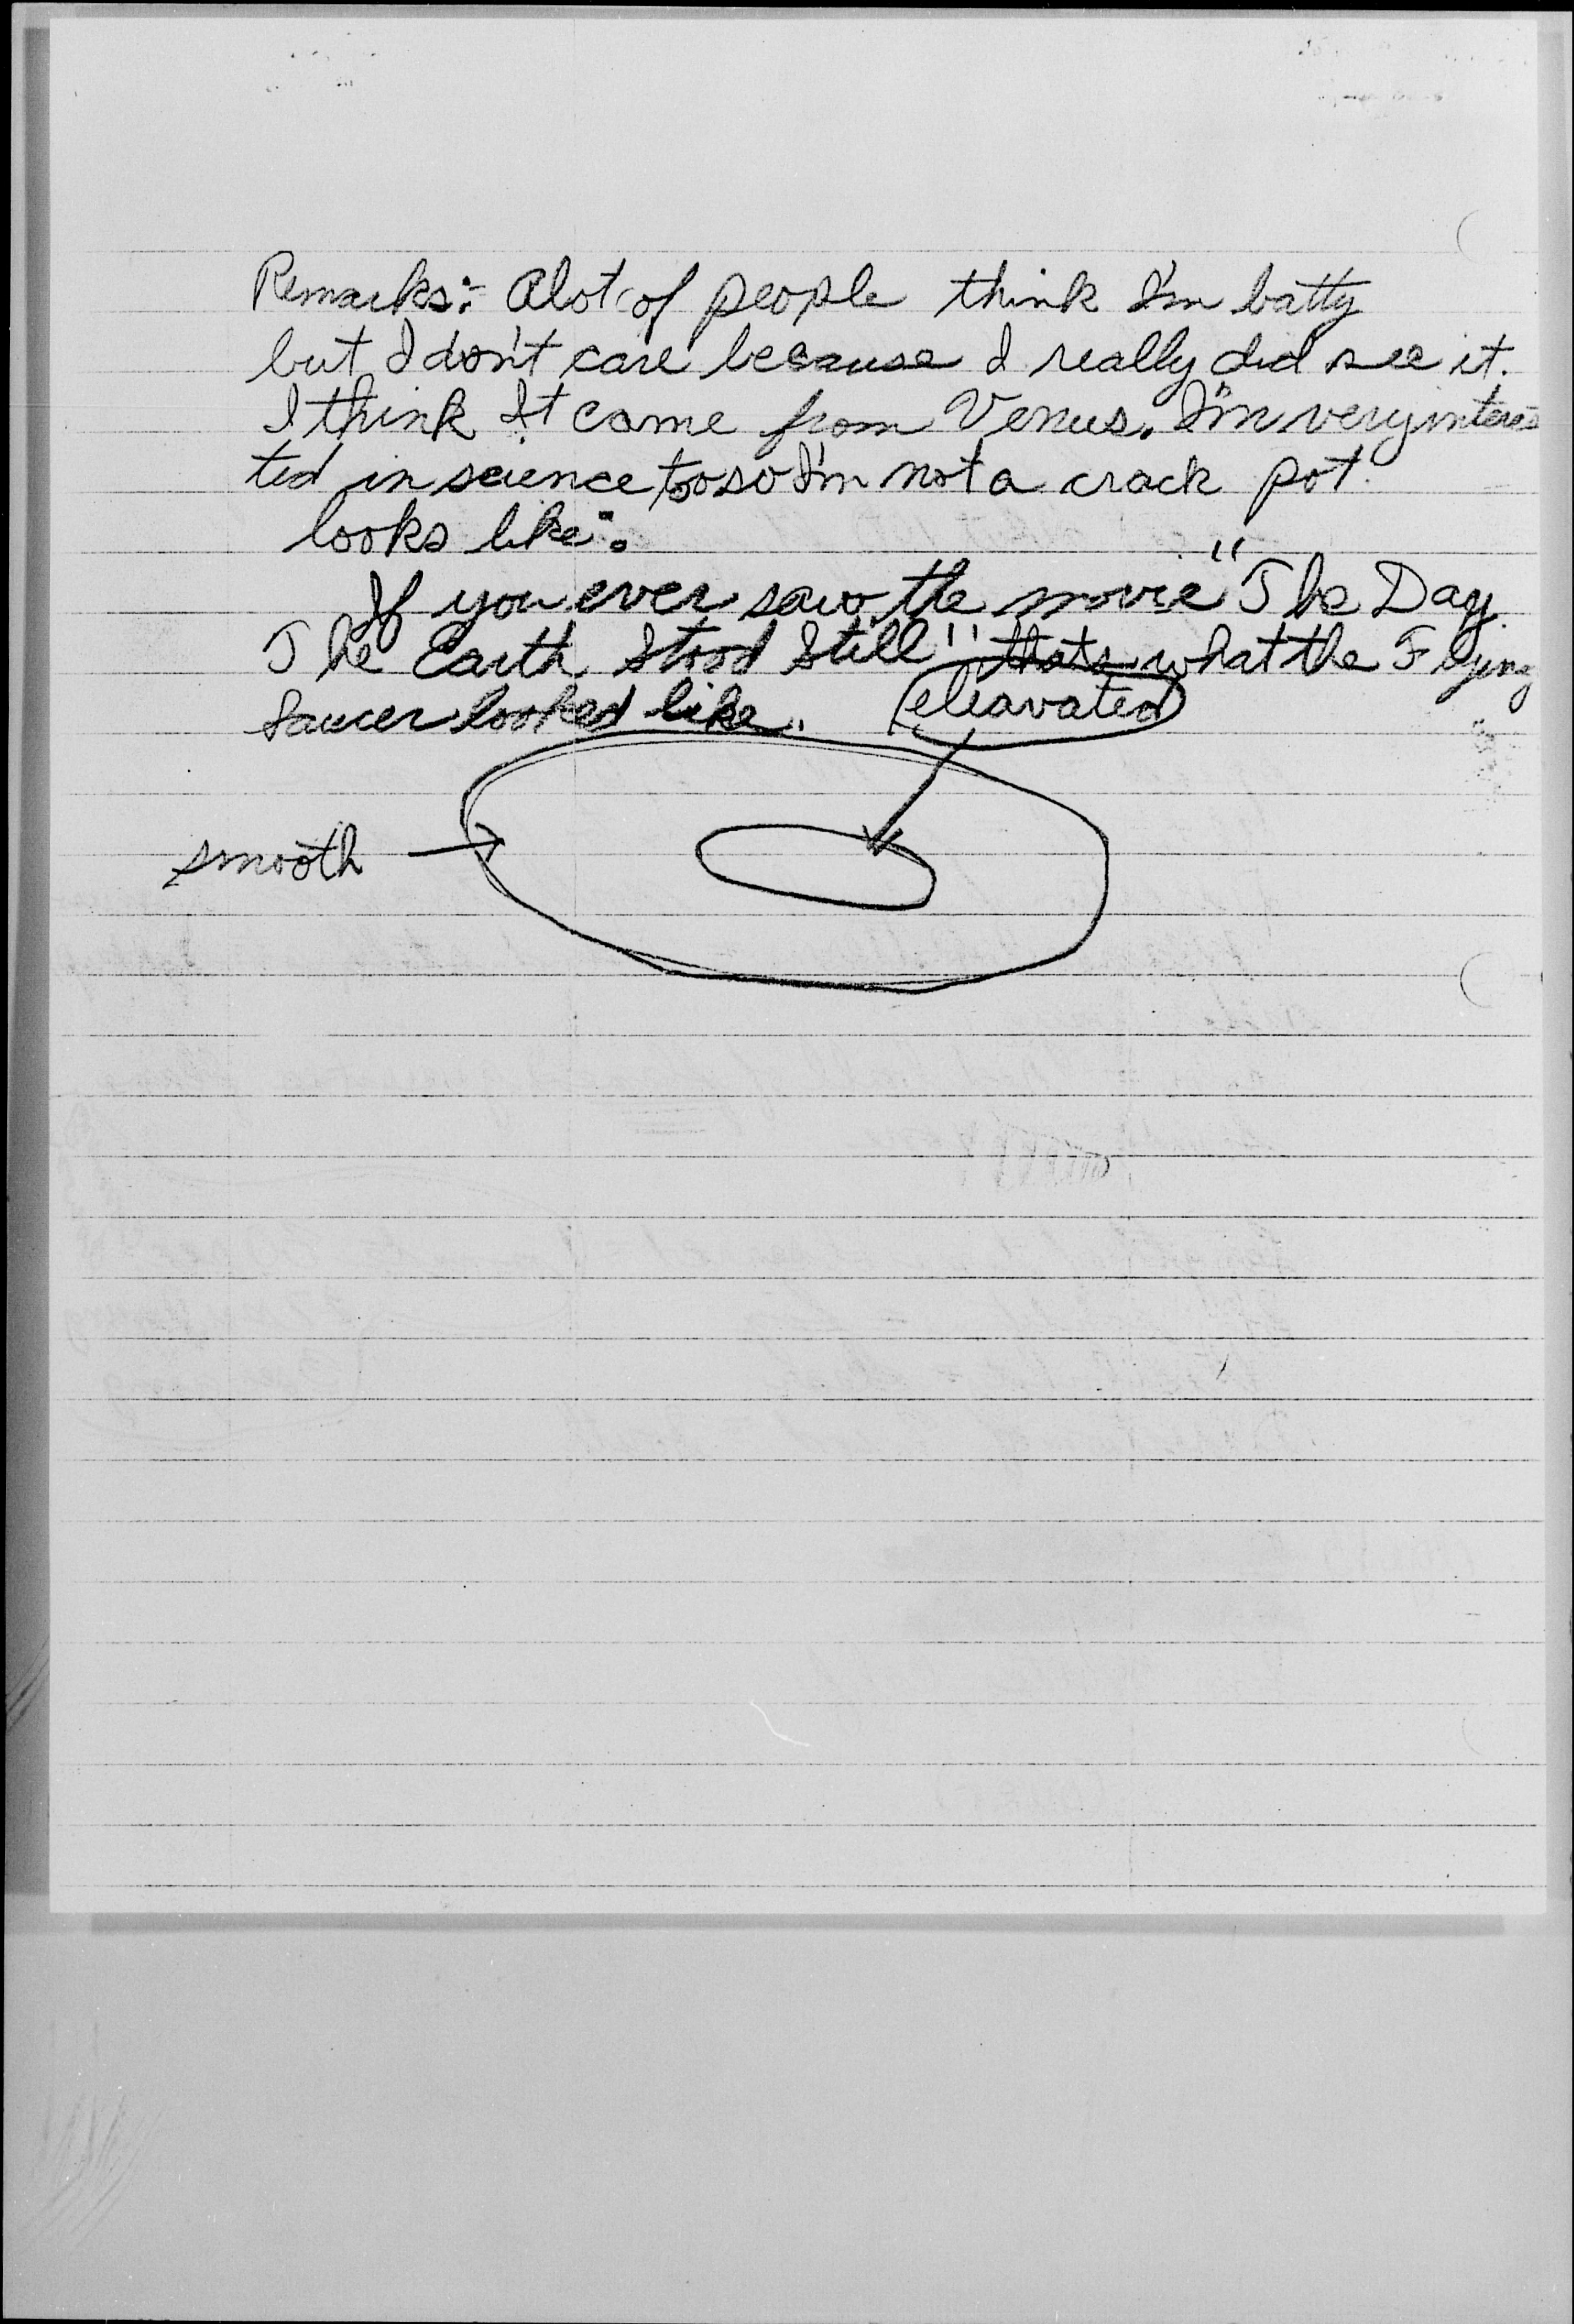 Remarks: Alot of people think I'm batty
but I don't care because I really did see it.
I think It came from Venus. I'm very interes
ted in science too so I'm not a crack pot.
looks like:
If you ever saw the movie "The Day
The Earth Stood Still" thats what the Flying
Saucer looked like.
eleavated
smooth